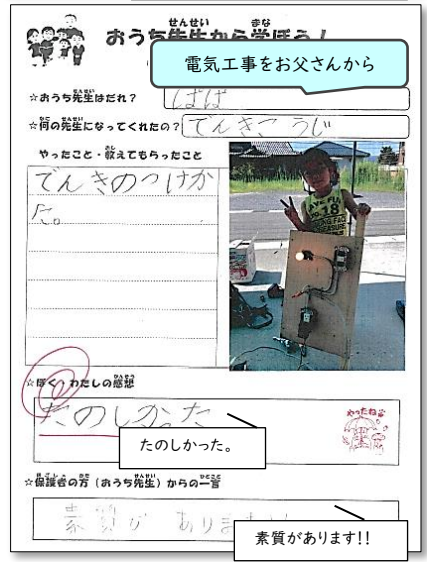 おうち先生から学ぼう！
電気工事をお父さんから
☆おうち先生はだれ？
ぱぱ
☆何の先生になってくれたの？
でんきこうじ
やったこと・教えてもらったこと
でんきのつけか
た。
AVE FU
NO.18
☆ぼく・わたしの感想
たのしかった
やったね
たのしかった。
☆保護者の方（おうち先生）からの一言
素質があります!!
素質があります!!